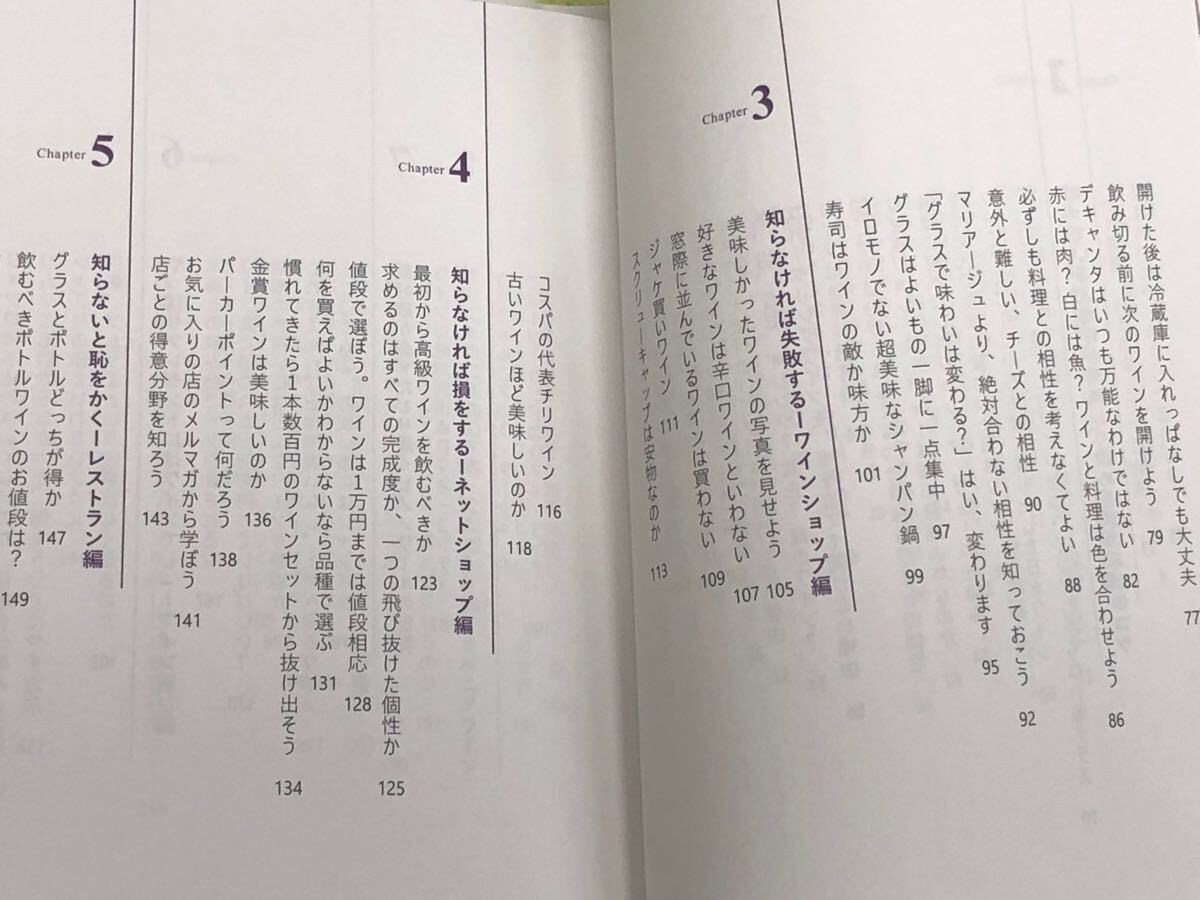 開けた後は冷蔵庫に入れっぱなしでも大丈夫 77
飲み切る前に次のワインを開けよう 79
デキャンタはいつも万能なわけではない 82
赤には肉？白には魚？ワインと料理は色を合わせよう 86
必ずしも料理との相性を考えなくてよい 88
意外と難しい、チーズとの相性 90
マリアージュより、絶対合わない相性を知っておこう 92
「グラスで味わいは変わる？」はい、変わります 95
グラスはよいもの一脚に一点集中 97
イロモノでない超美味なシャンパン鍋 99
寿司はワインの敵か味方か 101
Chapter 3
知らなければ失敗するーワインショップ編
美味しかったワインの写真を見せよう 105
好きなワインは辛口ワインといわない 107
窓際に並んでいるワインは買わない 109
ジャケ買いワイン 111
スクリューキャップは安物なのか 113
コスパの代表チリワイン 116
古いワインほど美味しいのか 118
Chapter 4
知らなければ損をするーネットショップ編
最初から高級ワインを飲むべきか 123
求めるのはすべての完成度か、一つの飛び抜けた個性か 125
値段で選ぼう。ワインは1万円までは値段相応 128
何を買えばよいかわからないなら品種で選ぶ 131
慣れてきたら1本数百円のワインセットから抜け出そう 134
金賞ワインは美味しいのか 136
パーカーポイントって何だろう 138
お気に入りの店のメルマガから学ぼう 141
店ごとの得意分野を知ろう 143
Chapter 5
知らないと恥をかくーレストラン編
グラスとボトルどっちが得か 147
飲むべきボトルワインのお値段は？ 149